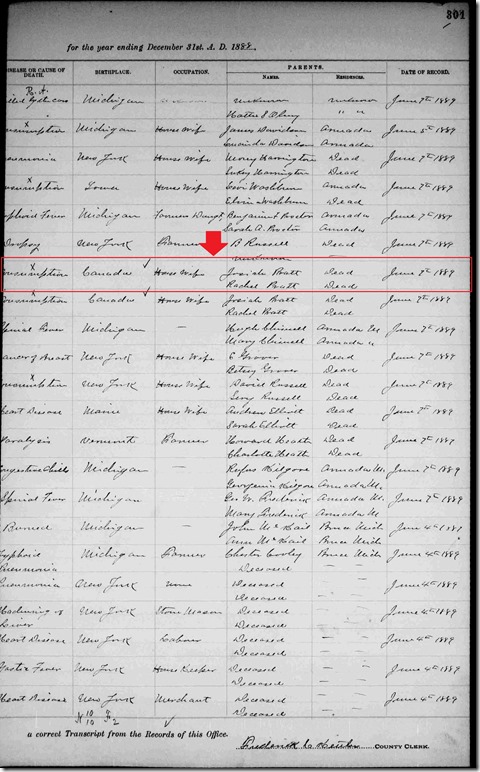 301
for the year ending December 31st. A. D. 188
DISEASE OR CAUSE OF DEATH. BIRTHPLACE. OCCUPATION. PARENTS. NAMES. RESIDENCES. DATE OF RECORD.
R. R.
Michigan unknown unknown June 7th 1889
Hattie " "
onsumption Michigan House Wife James Davidson Armada June 5th 1889
Lucinda Davidson Armada
neumonia New York House Wife Harrington Dead June 7th 1889
Harrington Dead
onsumption House Wife Levi Washburn Armada June 7th 1889
Washburn Dead
yphoid Fever Michigan Farmers Benjamin Proctor Armada June 7th 1889
Sarah A. Proctor Armada
Dropsy New York Farmer B Russell Dead June 7th 1889
unknown —
onsumption Canada House Wife Josiah Pratt Dead June 7th 1889
Rachel Pratt Dead
onsumption Canada House Wife Josiah Pratt Dead June 7th 1889
Rachel Pratt Dead
Spinal Fever Michigan — Hugh Armada M. June 7th 1889
Mary Armada "
ancer of Breast New York House Wife E Grover Dead June 7th 1889
Betsey Grover Dead
onsumption New York House Wife David Russell Dead June 7th 1889
Russell Dead
eart Disease Maine House Wife Andrew Elliott Dead June 7th 1889
Sarah Elliott Dead
aralysis Vermont Farmer Howard Heath Dead June 7th 1889
Charlotte Heath Dead
ongestive Chills Michigan — Rufus Kilgore Armada M. June 7th 1889
Georgenia Kilgore Armada M.
Spinal Fever Michigan — Geo W. Frederick Armada M. June 7th 1889
Mary Frederick Armada M
Burned Michigan — John Mc Kail Bruce Mich June 4th 1889
Ann Mc Kail Bruce Mich
Typhoid Michigan Farmer Chester Cooley Bruce Mich June 4th 1889
Pneumonia Deceased —
Pneumonia New York none Deceased — June 4th 1889
Deceased —
Hardening of New York Stone Mason Deceased — June 4th 1889
Liver Deceased —
Heart Disease New York Labour Deceased — June 4th 1889
Deceased —
Gastric Fever New York House Keeper Deceased — June 4th 1889
Deceased —
Heart Disease New York Merchant Deceased — June 4th 1889
Deceased —
a correct Transcript from the Records of this Office.
Frederick C. COUNTY CLERK.